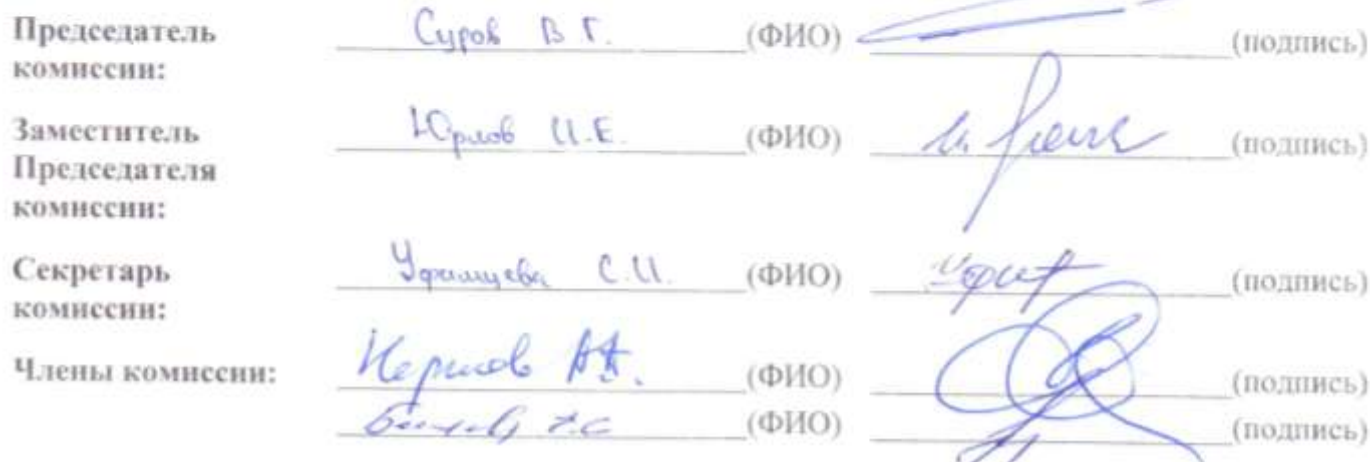 Председатель комиссии: Суров В.Г. (ФИО) (подпись)
Заместитель Председателя комиссии: Юрлов И.Е. (ФИО) (подпись)
Секретарь комиссии: Уфимцева С.И. (ФИО) (подпись)
Члены комиссии: (ФИО) (подпись)
(ФИО) (подпись)